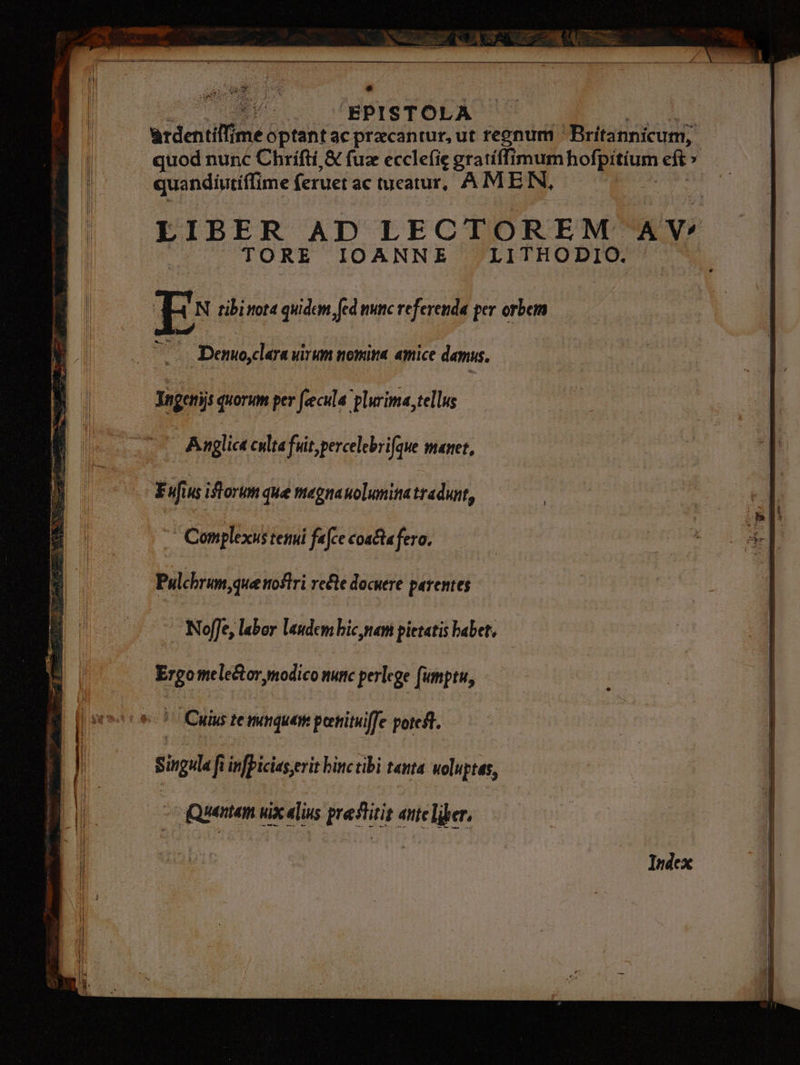 EPISTOLA
ardentiſſime optant ac præcantur, ut regnum Britannicum,
quod nunc Chriſti, & ſuæ eccleſię gratiſſimum hoſpitium eſt,
quandiutiſſime ſeruet ac tueatur, AMEN,
LIBER AD LECTOREM AV-
TORE IOANNE LITHODIO.
EN tibi nota quidem, ſed nunc referenda per orbem
Denuo, clara uirum nomina amice damus.
Ingenijs quorum per ſæcula plurima, tellus
Anglica culta fuit, percelebriſque manet,
Fuſius iſtorum quæ magna uolumina tradunt,
Complexus tenui faſce coacta fero.
Pulchrum, quæ noſtri recte docuere parentes
Noſſe, labor laudem hic, nam pietatis habet.
Ergo me lector, modico nunc perlege ſumptu,
Cuius te nunquam pœnituiſſe poteſt.
Singula ſi inſpicias, erit hinc tibi tanta uoluptas,
Quantam uix alius præſtitit ante liber.
Index